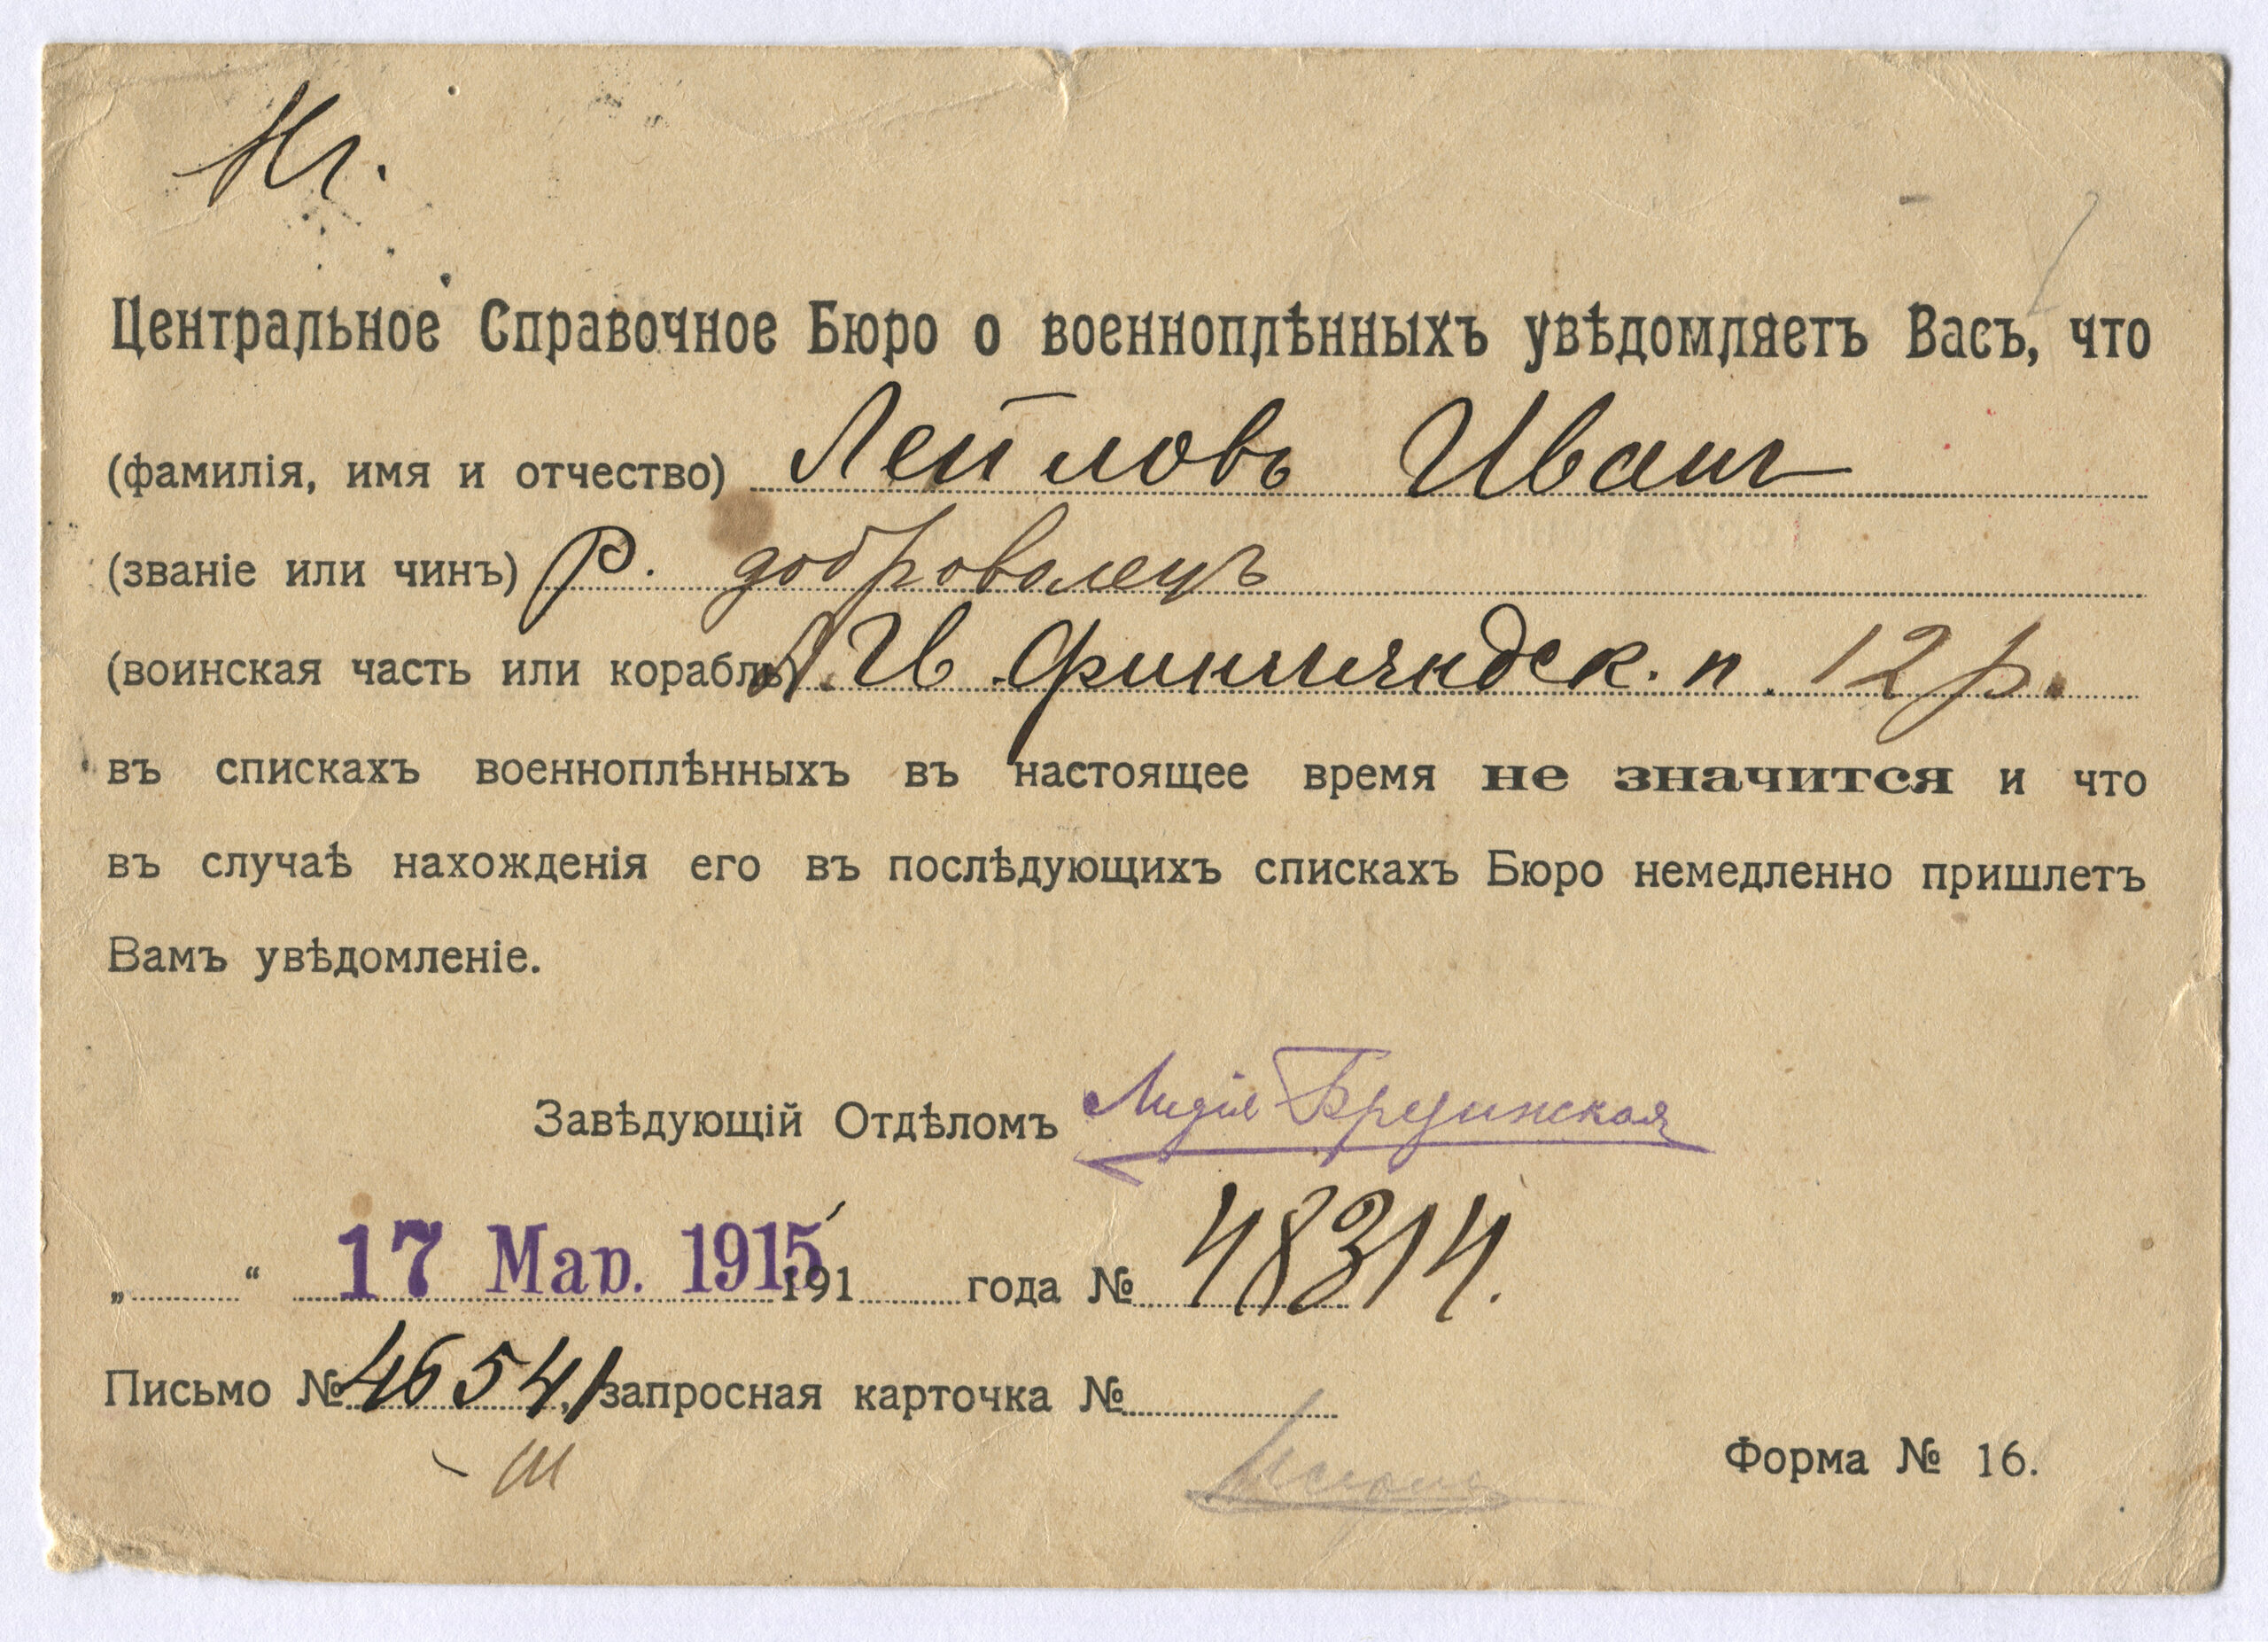 Нг.
Центральное Справочное Бюро о военноплѣнныхъ увѣдомляетъ Васъ, что
(фамилія, имя и отчество) Лейловъ Иванъ
(званіе или чинъ) Р. доброволецъ
(воинская часть или корабль) Л. Гв. Финляндск. п. 12 р.
въ спискахъ военноплѣнныхъ въ настоящее время не значится и что
въ случаѣ нахожденія его въ послѣдующихъ спискахъ Бюро немедленно пришлетъ
Вамъ увѣдомленіе.
Завѣдующій Отдѣломъ Лидія
„ “ 17 Мар. 1915 191 года № 48314.
Письмо № 46541, запросная карточка №
Форма № 16.